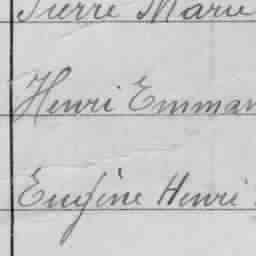 Pierre Marie
Henri Emman
Eugène Henri